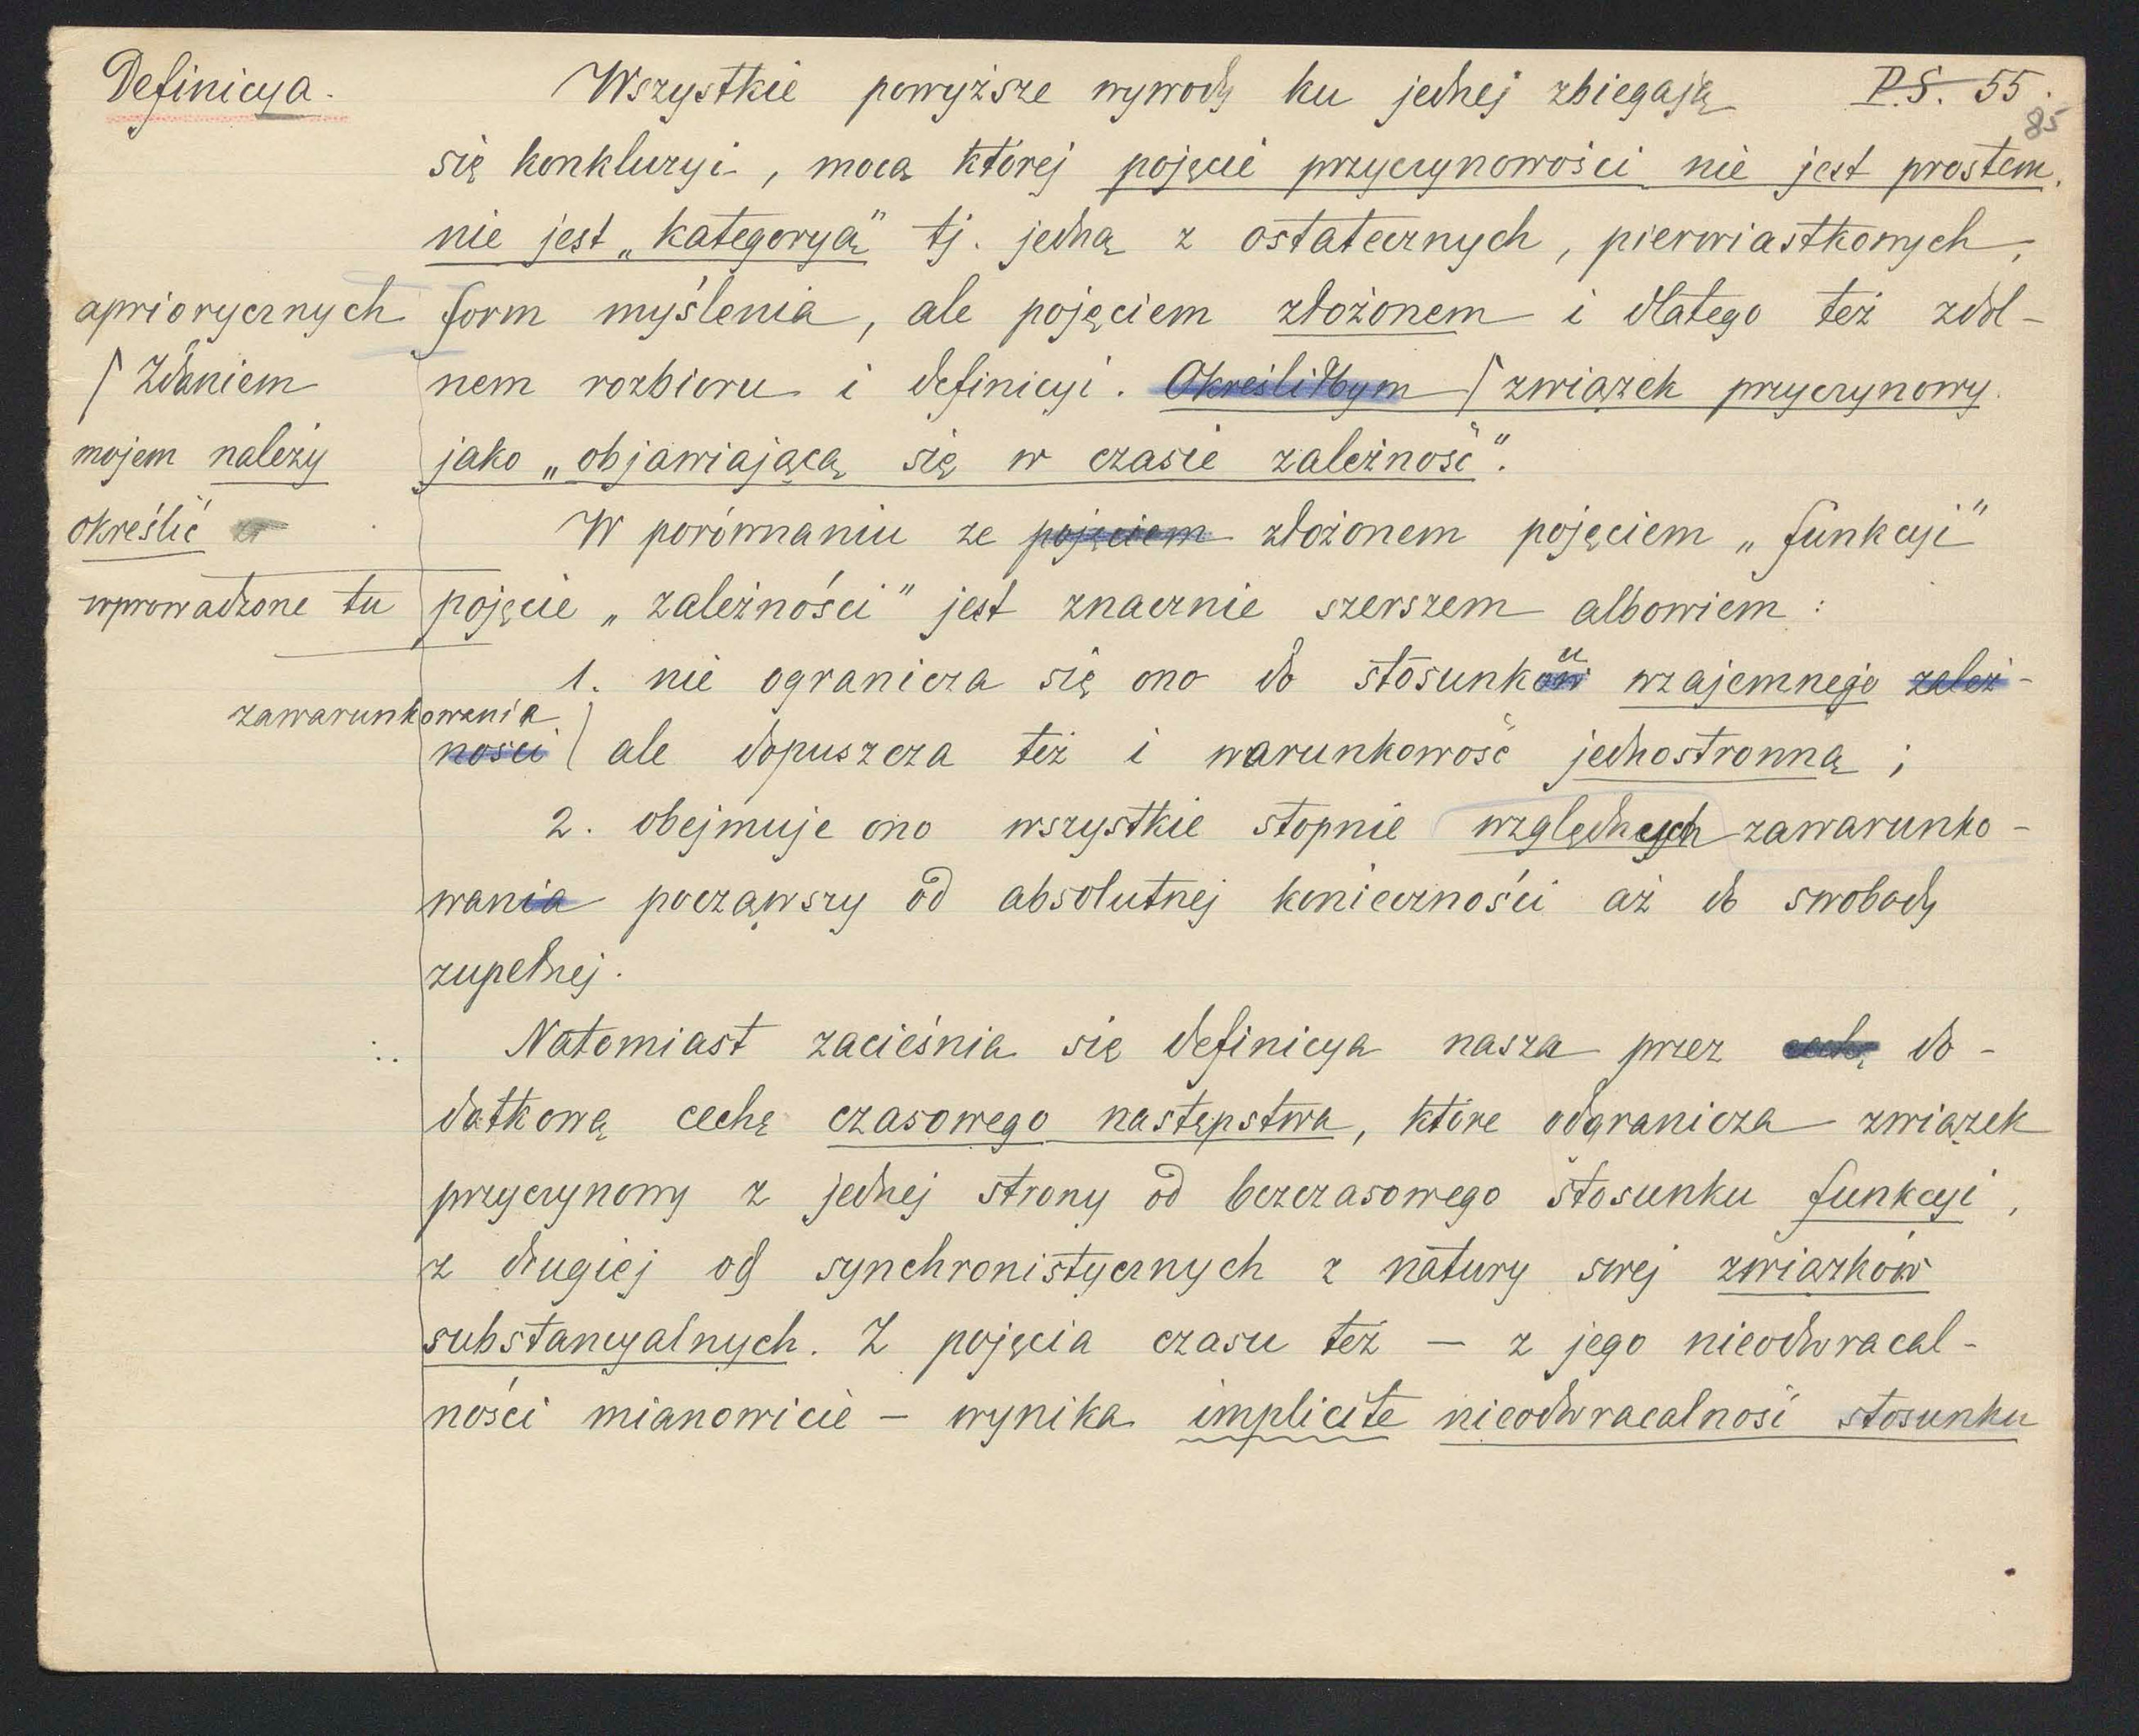 Definicya. Wszystkie powyższe wywody ku jednej zbiegają P.S. 55.
85
się konkluzyi, mocą której pojęcie przyczynowości nie jest prostem,
nie jest „kategoryą" tj. jedną z ostatecznych, pierwiastkowych,
apriorycznych form myślenia, ale pojęciem złożonem i dlatego też zdol-
⌈ Zdaniem nem rozbioru i definicyi. Określiłbym ⌈ związek przyczynowy
mojem należy jako „objawiającą się w czasie zależność".
określić W porównaniu ze pojęciem złożonem pojęciem „funkcyi"
wprowadzone tu pojęcie „zależności" jest znacznie szerszem albowiem:
1. nie ogranicza się ono do stosunku wzajemnego zależ-
zawarunkowania
ności ale dopuszcza też i warunkowość jednostronną;
2. obejmuje ono wszystkie stopnie względnych zawarunko-
wania począwszy od absolutnej konieczności aż do swobody
zupełnej.
Natomiast zacieśnia się definicya nasza przez cechę do-
datkową cechę czasowego następstwa, które odgranicza związek
przyczynowy z jednej strony od bezczasowego stosunku funkcyi,
z drugiej od synchronistycznych z natury swej związków
substancyalnych. Z pojęcia czasu też — z jego nieodwracal-
ności mianowicie — wynika implicite nieodwracalność stosunku